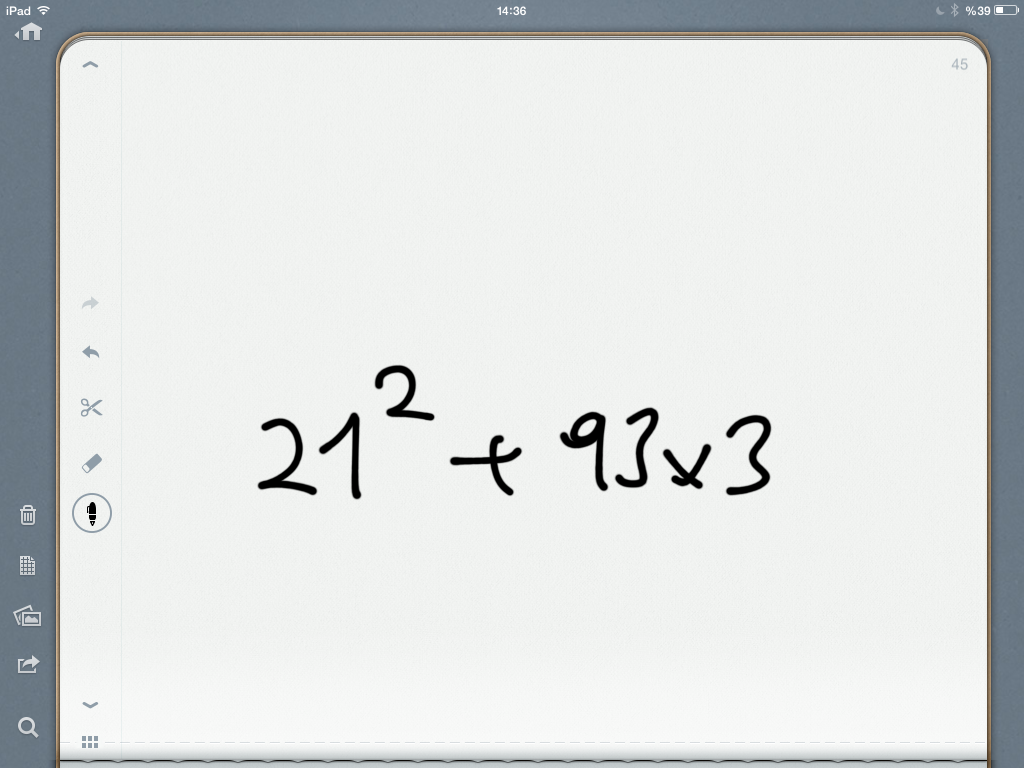 iPad 14:36 %39
45
21² + 93x3